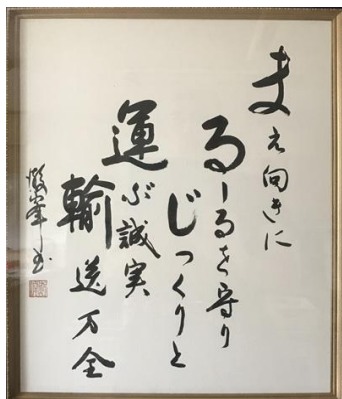 まえ向きに
るーるを守り
じっくりと
運ぶ誠実
輸送万全